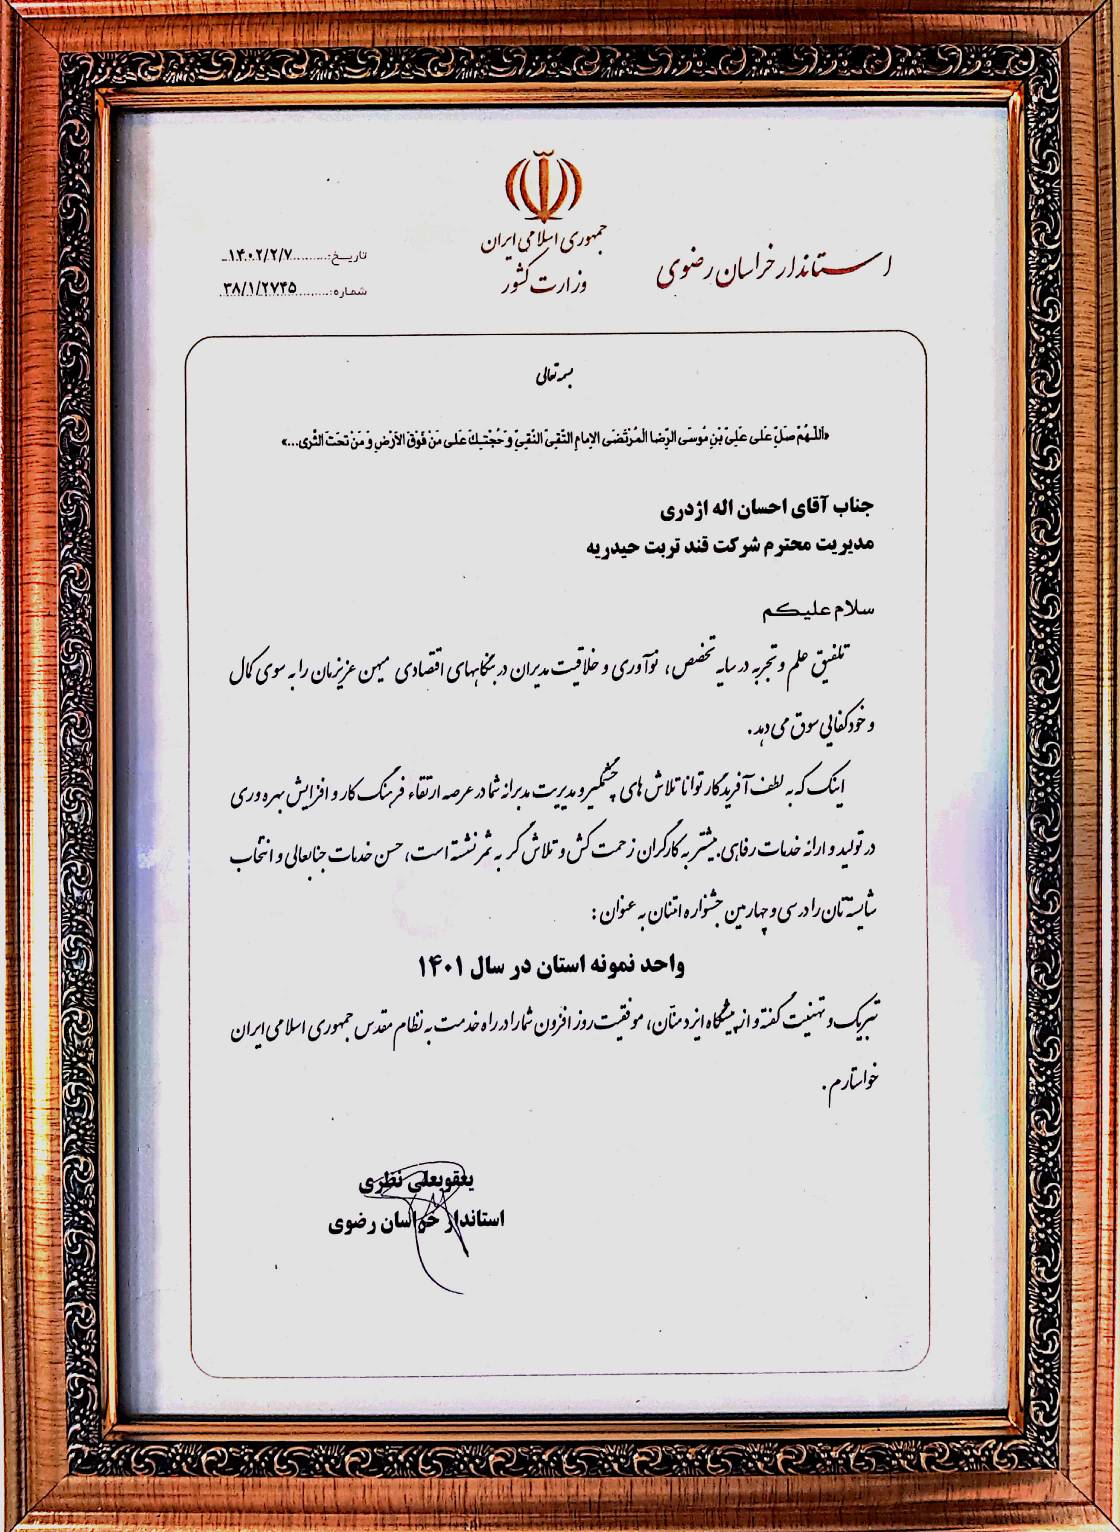 جمهوری اسلامی ایران
وزارت کشور
استاندار خراسان رضوی
تاریخ:..........۱۴۰۲/۲/۷
شماره:..........۳۸/۱/۲۷۴۵
بسمه تعالی
«اللّهُمَّ صَلِّ عَلی عَلِیِّ بْنِ مُوسَی الرِّضا الْمُرْتَضَی الاِمامِ التَّقِیِّ النَّقِیِّ وَ حُجَّتِکَ عَلی مَنْ فَوْقَ الاَرْضِ وَ مَنْ تَحْتَ الثَّری...»
جناب آقای احسان اله اژدری
مدیریت محترم شرکت قند تربت حیدریه
سلام علیکم
تلفیق علم و تجربه در سایه تخصص، نوآوری و خلاقیت مدیران در بنگاههای اقتصادی میهن عزیزمان را به سوی کمال
و خودکفایی سوق می دهد.
اینک که به لطف آفریدگار توانا تلاش های چشمگیر و مدیریت مدبرانه شما در عرصه ارتقاء فرهنگ کار و افزایش بهره وری
در تولید و ارائه خدمات رفاهی بیشتر به کارگران زحمت کش و تلاش گر به ثمر نشسته است، حسن خدمات جنابعالی و انتخاب
شایسته تان را در سی و چهارمین جشنواره امتنان به عنوان:
واحد نمونه استان در سال ۱۴۰۱
تبریک و تهنیت گفته و از پیشگاه ایزد منّان، موفقیت روز افزون شما را در راه خدمت به نظام مقدس جمهوری اسلامی ایران
خواستارم.
یعقوبعلی نظری
استاندار خراسان رضوی